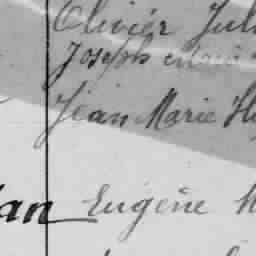 Olivier Jul
Joseph
Jean Marie
an Eugène